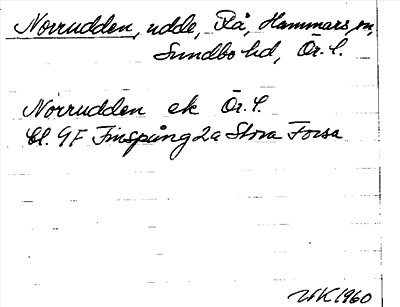 Norrudden, udde, Rå, Hammars sn,
Sundbo hd, Ör. l.
Norrudden ek Ör. l.
Bl. 9F Finspång 2a Stora Forsa
UK 1960